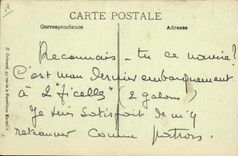 A
CARTE POSTALE
Correspondance
Adresse
Reconnais-tu ce navire?
C'est mon dernier embarquement
à 2 "ficelles" (2 galons)
Je suis satisfait de m'y
retrouver comme patron.